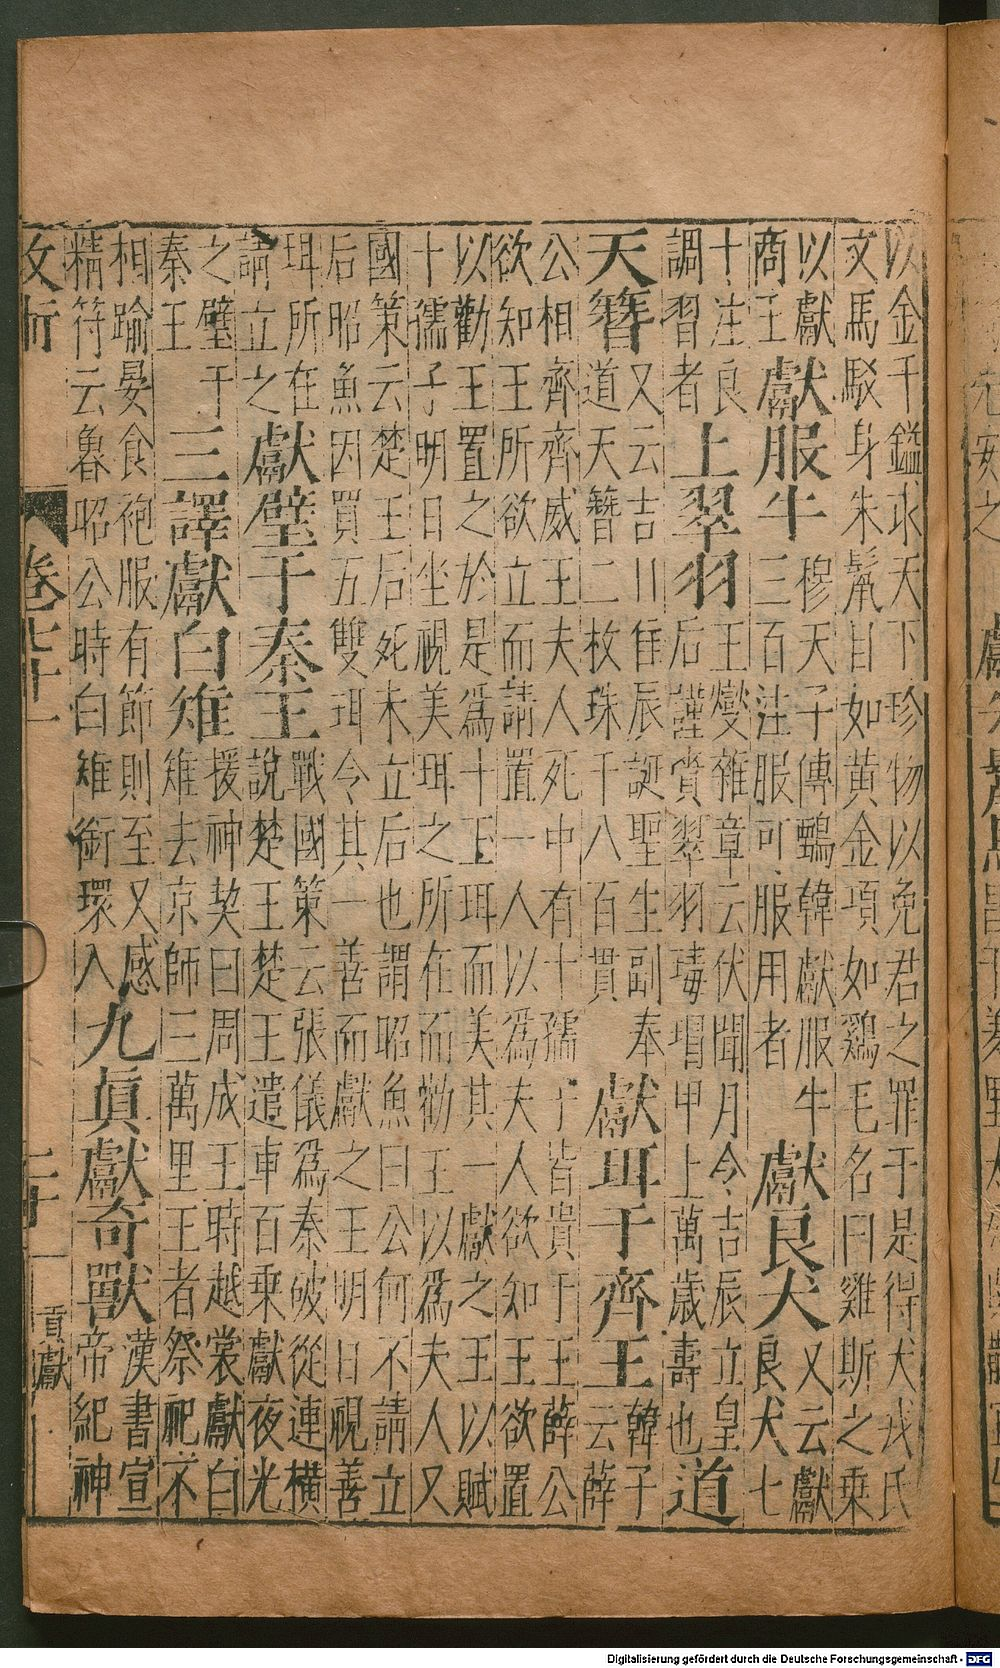 以金千鎰求天下珍物以免君之罪于是得犬戎氏
文馬駁身朱鬣目如黃金項如鷄毛名曰雞斯之乗
以獻
商王
獻服牛
穆天子傳鸀韓獻服牛
三百注服可服用者
獻良犬
又云獻
良犬七
十注良
調習者
上翠羽
王燮雜章云伏聞月今吉辰立皇
后謹賞翠羽瑇瑁甲上萬歲壽也
道
天簮
又云吉川隹辰誕聖生副奉
道天簪二枚珠千八百貫
獻珥于齊王
韓子
云薛
公相齊齊威王夫人死中有十孺子皆貴于王薛公
欲知王所欲立而請置一人以為夫人欲知王欲置
以勸王置之於是爲十玉珥而美其一獻之王以賦
十孺子明日坐視美珥之所在而勸王以爲夫人又
國策云楚王后死未立后也謂昭魚曰公何不請立
后昭魚因買五雙珥令其一善而獻之王明日視善
珥所在
請立之
獻璧于秦王
戰國策云張儀爲秦破從連橫
說楚王楚王遣車百乗獻夜光
之璧于
秦王
三譯獻白雉
援神契曰周成王時越裳獻白
雉去京師三萬里王者祭祀不
相踰晏食袍服有節則至又感
精符云魯昭公時白雉銜環入
九眞獻奇獸
漢書宣
帝紀神
卷七十一
貢獻
Digitalisierung gefördert durch die Deutsche Forschungsgemeinschaft - DFG